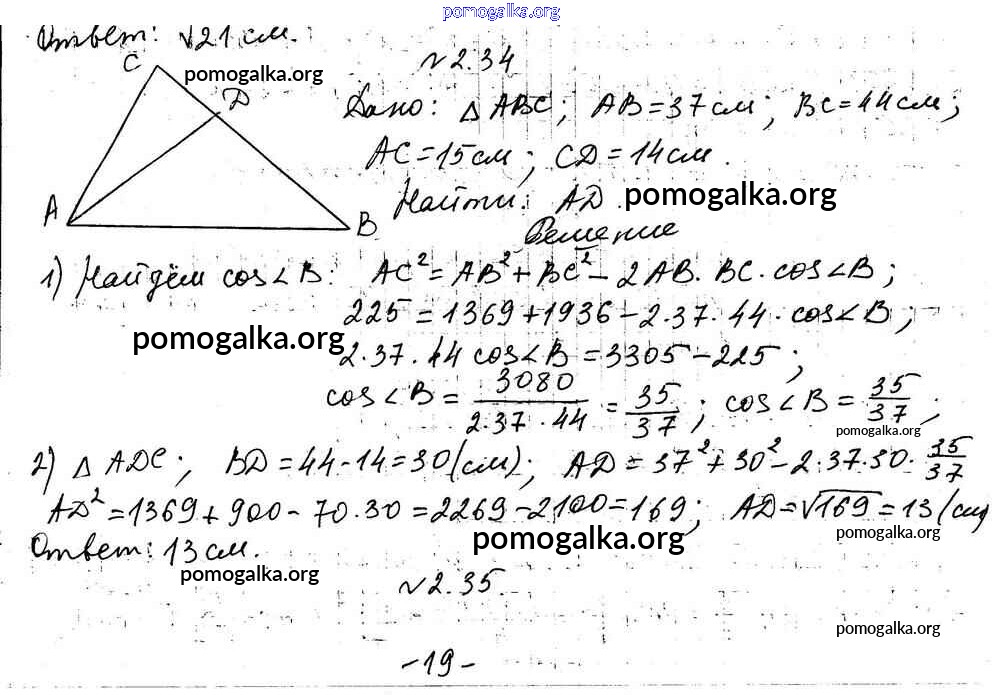 pomogalka.org
Ответ: √21 см.
pomogalka.org
№2.34
C
D
A
B
Дано: △ABC; AB=37см; BC=44см;
AC=15см; CD=14см.
Найти: AD.
pomogalka.org
Решение
1) Найдём cos∠B: AC²=AB²+BC²-2AB·BC·cos∠B;
225=1369+1936-2·37·44·cos∠B;
pomogalka.org
2·37·44 cos∠B=3305-225;
cos∠B=3080/2·37·44=35/37; cos∠B=35/37;
pomogalka.org
2) △ADC; BD=44-14=30(см); AD=37²+30²-2·37·30·35/37
AD²=1369+900-70·30=2269-2100=169; AD=√169=13(см)
pomogalka.org
pomogalka.org
Ответ: 13см.
pomogalka.org
№2.35.
pomogalka.org
-19-